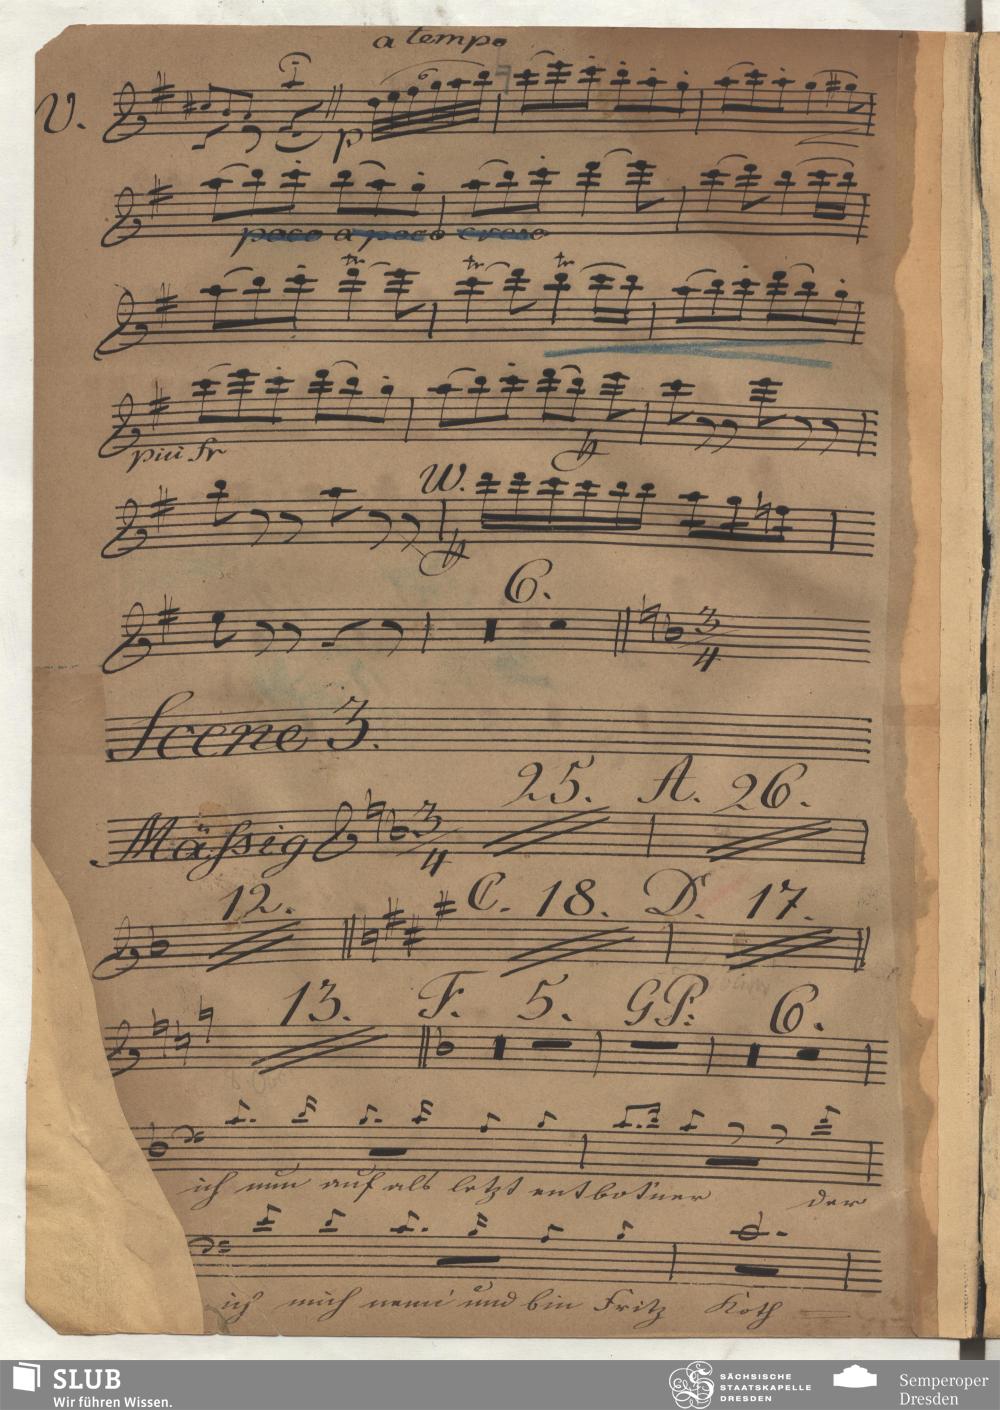 a tempo
V.
6
p
poco a poco cresc
tr tr tr
piu fr
W.
6.
3/4
Scene 3.
25. A. 26.
Mässig 3/4
12. C. 18. D. 17.
13. F. 5. GP. 6.
ich nun auf als letzt entbot'ner der
ich mich nenn' und bin Fritz Koth
SLUB
Wir führen Wissen.
SÄCHSISCHE
STAATSKAPELLE
DRESDEN
Semperoper
Dresden